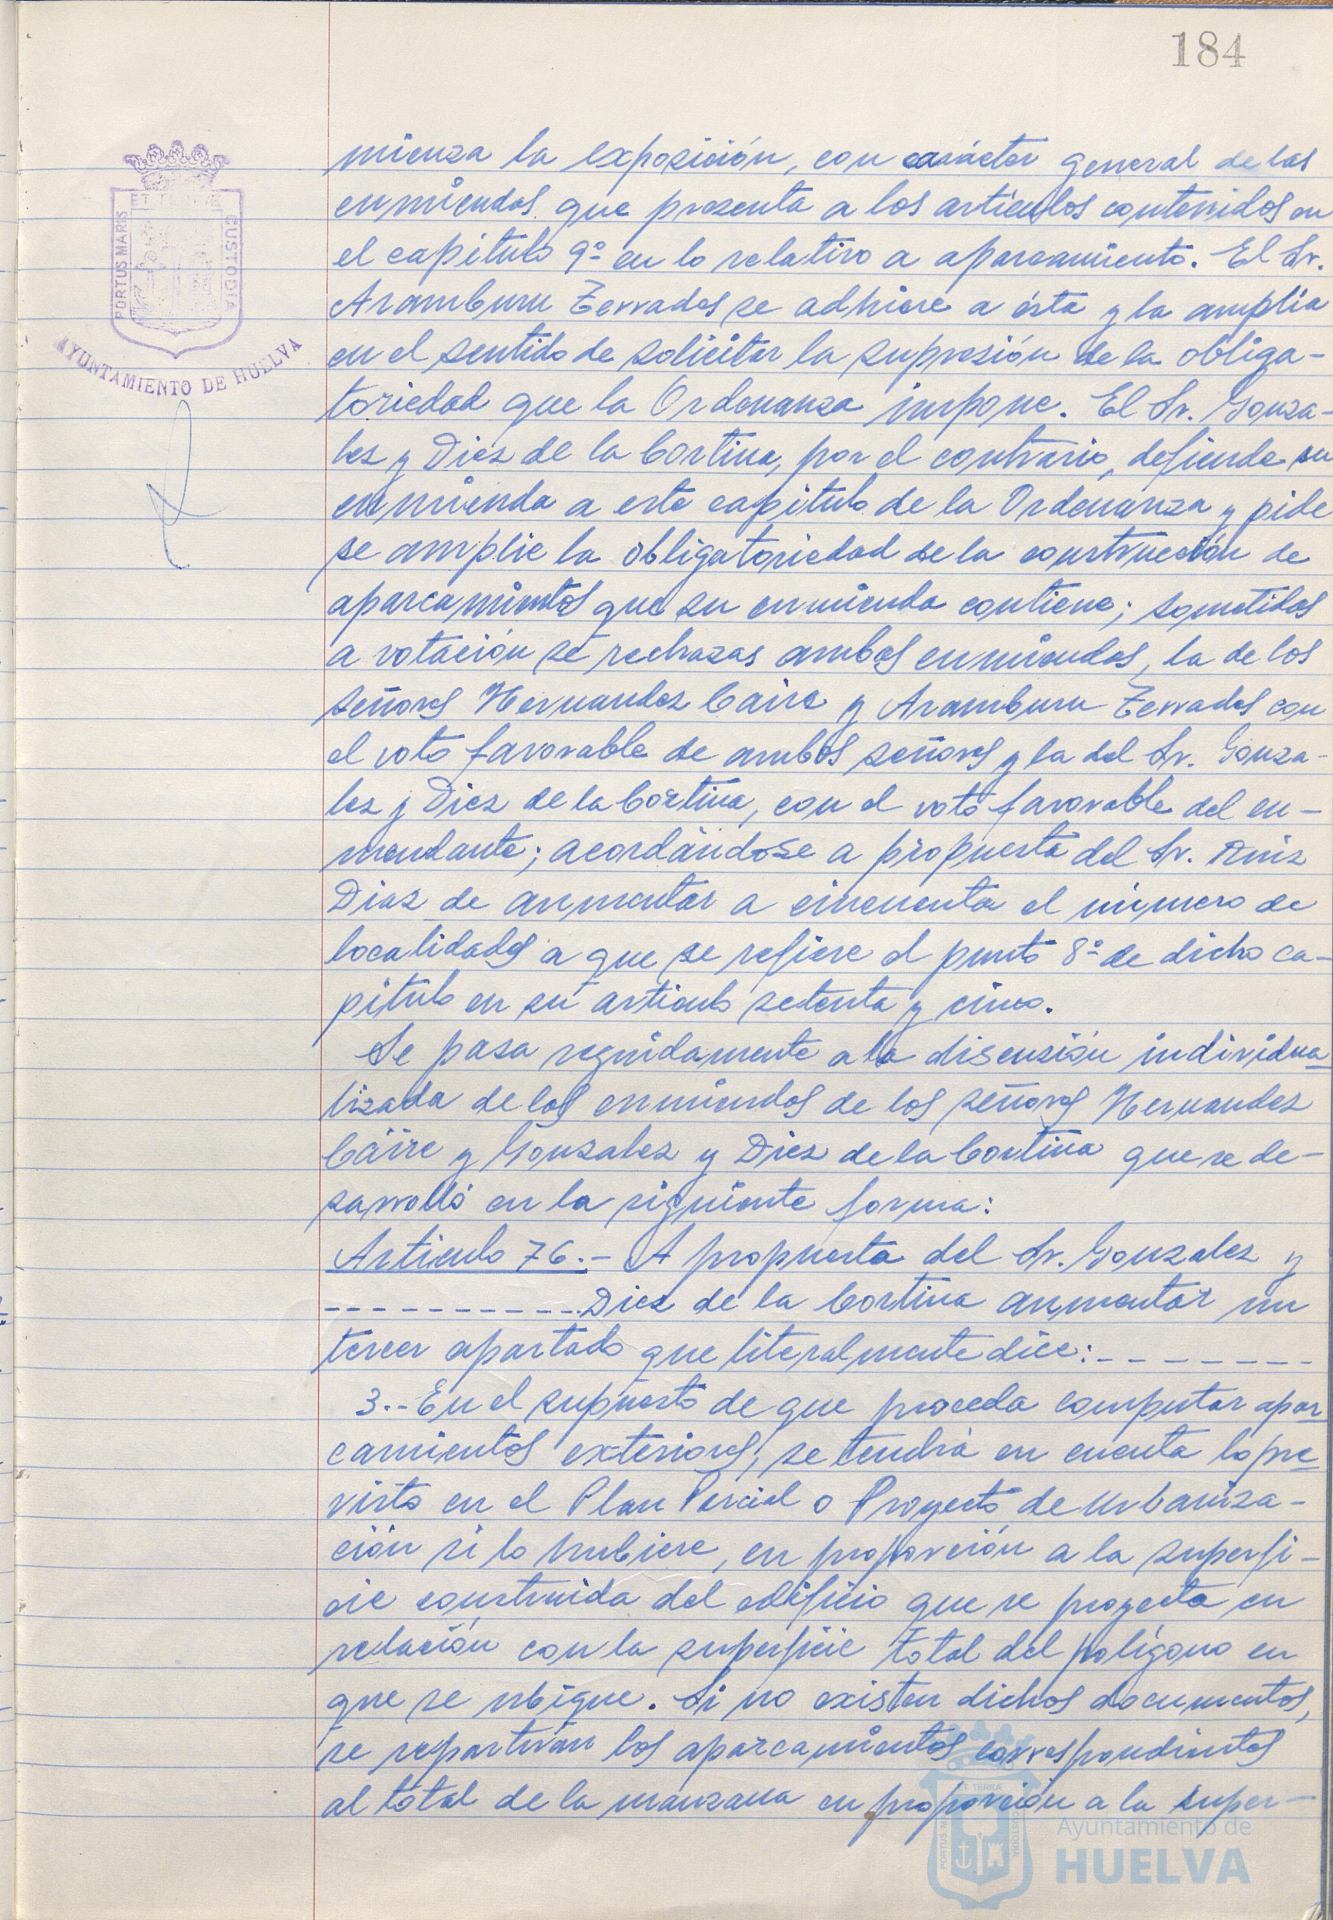 184
mienza la exposición, con carácter general de las
enmiendas que presenta a los artículos contenidos en
el capítulo 9º en lo relativo a aparcamiento. El Sr.
Aramburu Terrades se adhiere a ésta y la amplía
en el sentido de solicitar la supresión de la obliga-
toriedad que la Ordenanza impone. El Sr. Gonza-
lez y Diez de la Cortina, por el contrario, defiende su
enmienda a este capitulo de la Ordenanza y pide
se amplie la obligatoriedad de la construcción de
aparcamientos que su enmienda contiene; sometidas
a votación se rechazas ambas enmiendas, la de los
señores Hernandez Caire y Aramburu Terrades con
el voto favorable de ambos señores y la del Sr. Gonza-
lez y Diez de la Cortina, con el voto favorable del en-
mendante; acordándose a propuesta del Sr. Ruiz
Diaz de aumentar a cincuenta el número de
localidades a que se refiere el punto 8º de dicho ca-
pitulo en su articulo setenta y cinco.
Se pasa seguidamente a la discusión individua-
lizada de las enmiendas de los señores Hernandez
Cáire y Gonzalez y Diez de la Cortina que se de-
sarrolló en la siguiente forma:
Articulo 76.- A propuesta del Sr. Gonzalez y
----------- Diez de la Cortina aumentar un
tercer apartado que literalmente dice:--------
3.- En el supuesto de que proceda computar apar
camientos exteriores, se tendrá en cuenta lo pre-
visto en el Plan Parcial o Proyecto de Urbaniza-
ción si lo hubiere, en proporción a la superfi-
cie construida del edificio que se proyecta en
relación con la superficie total del polígono en
que se ubique. Si no existen dichos documentos,
se repartirán los aparcamientos correspondientes
al total de la manzana en proporción a la super-
PORTUS MARIS
CUSTODIA
AYUNTAMIENTO DE HUELVA
ET TERRAE
PORTUS MARIS
CUSTODIA
Ayuntamiento de
HUELVA